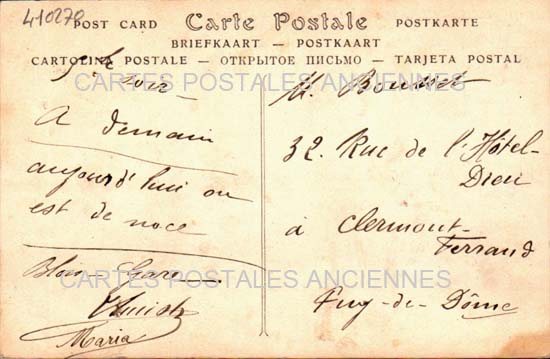 410270
POST CARD Carte Postale POSTKARTE
BRIEFKAART — POSTKAART
CARTOLINA POSTALE — ОТКРЫТОЕ ПИСЬМО — TARJETA POSTAL
CARTES POSTALES ANCIENNES
A demain
aujourd'hui on
est de noce
Maria
M. Bousset
32. Rue de l'Hôtel-
Dieu
à Clermont-
Ferrand
Puy-de-Dôme
CARTES POSTALES ANCIENNES